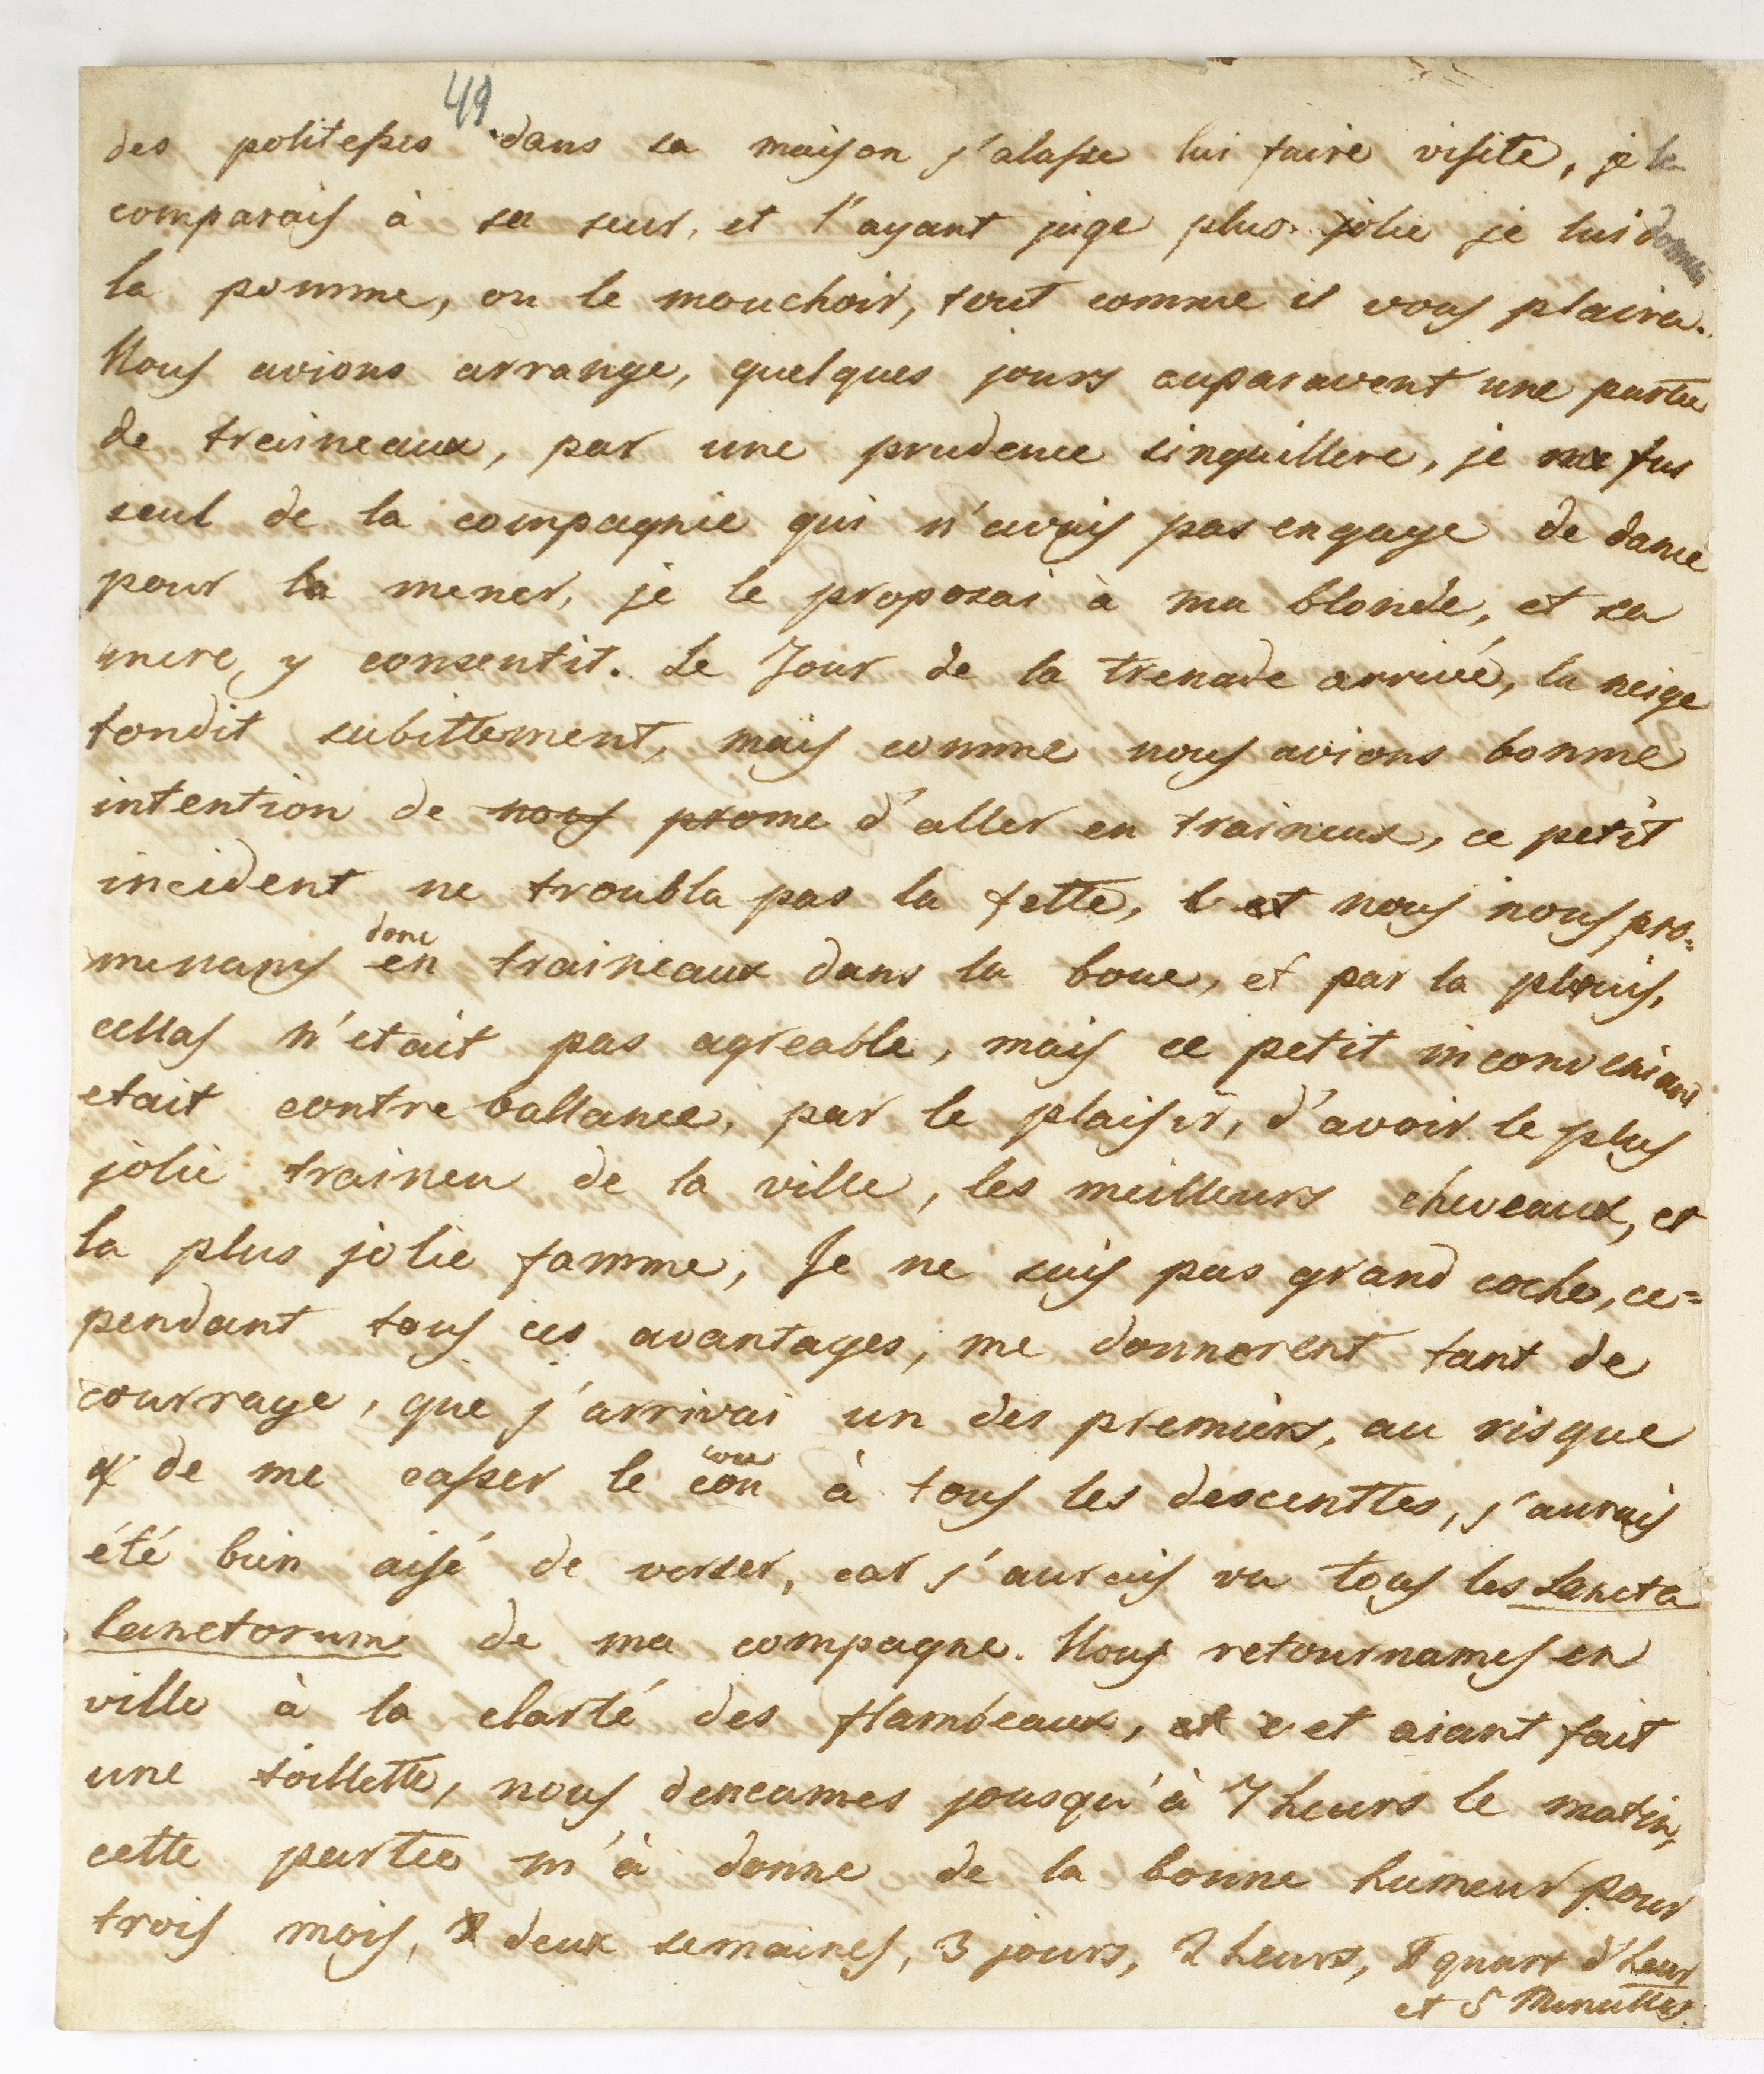 49
des politesses dans sa maison j'alasse lui faire visite, je le
comparais à sa seur, et l'ayant juge plus jolie je lui donnai
la pomme, ou le mouchoir, tout comme il vous plaira.
Nous avions arrange, quelques jours auparavent une partie
de traineaux, par une prudence singuillere, je me fus
seul de la compagnie qui n'avais pas engage de dame
pour la mener, je le proposai à ma blonde, et sa
mere y consentit. Le Jour de la trenade arrivé, la neige
fondit subittement, mais comme nous avions bonne
intention de nous prome d'aller en traineux, ce petit
incident ne troubla pas la fette, et nous nous pro=
menams donc en traineaux dans la boue, et par la pluis,
cellas n'etait pas agreable, mais ce petit inconveniant
etait contre ballance, par le plaisir, d'avoir le plus
jolie traineu de la ville, les meilleurs cheveaux, et
la plus jolie famme, Je ne suis pas grand coche, ce=
pendant tous ces avantages, me donnerent tant de
courrage, que j'arrivai un des premiers, au risque
de me casser le cou cou à tous les descenttes, j'aurais
été bien aisé de verser, car j'aurais vu tous les Sancta
Sanctorum de ma compagne. Nous retournames en
ville à la clarté des flambeaux, et et aiant fait
une toillette, nous dencames jousqu'à 7 heurs le matin,
cette partie m'à donne de la bonne humeur pour
trois mois, deux semaines, 3 jours, 2 heurs, quart d'heur
et 5 Minuttes.